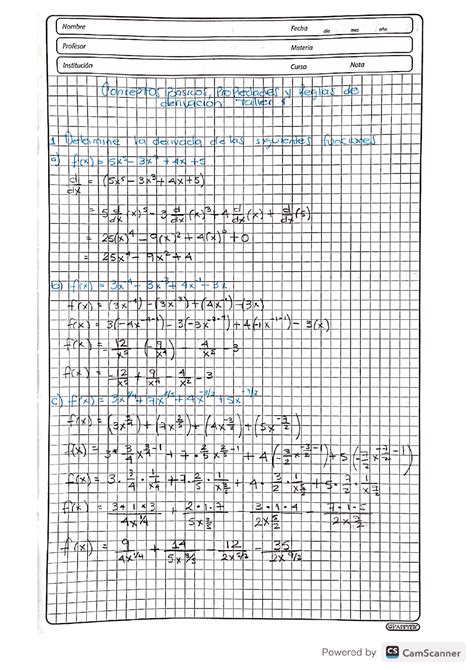 Nombre
Fecha día mes año
Profesor
Materia
Institución
Curso Nota
Conceptos básicos, Propiedades y Reglas de
derivación Taller 1
1 Determine la derivada de las siguientes funciones
a) f(x) = 5x⁵ - 3x³ + 4x + 5
d/dx = (5x⁵ - 3x³ + 4x + 5)
= 5 d/dx (x)⁵ - 3 d/dx (x)³ + 4 d/dx (x) + d/dx (5)
= 25(x)⁴ - 9(x)² + 4(x)⁰ + 0
= 25x⁴ - 9x² + 4
b) f(x) = 3x⁻⁴ - 3x⁻³ + 4x⁻¹ - 3x
f(x) = (3x⁻⁴) - (3x⁻³) + (4x⁻¹) - (3x)
f(x) = 3(-4x⁻⁴⁻¹) - 3(-3x⁻³⁻¹) + 4(-1x⁻¹⁻¹) - 3(x)
f(x) = -12/x⁵ - (-9/x⁴) - 4/x² - 3
f(x) = -12/x⁵ + 9/x⁴ - 4/x² - 3
c) f(x) = 3x^3/4 + 7x^2/5 + 4x^-3/2 + 5x^-7/2
f(x) = (3x^3/4) + (7x^2/5) + (4x^-3/2) + (5x^-7/2)
f(x) = 3 * 3/4 x^3/4-1 + 7 * 2/5 x^2/5-1 + 4(-3/2 x^-3/2-1) + 5(-7/2 x^-7/2-1)
f(x) = 9/4x^1/4 + 14/5x^3/5 - 12/2x^5/2 - 35/2x^9/2
Powered by CS CamScanner